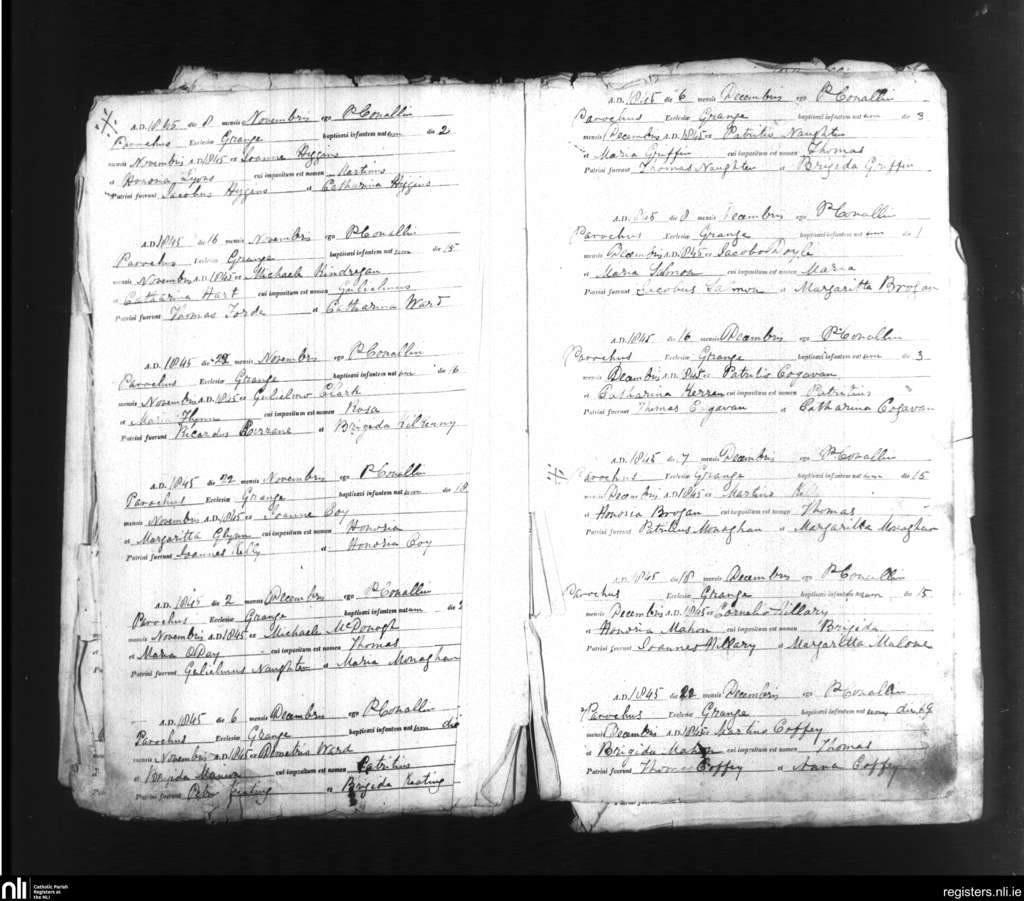 A.D. 1845 die 8 mensis Novembris ego P Conallin
Parochus Ecclesiæ Grange baptizavi infantem natum die 2
mensis Novembris A.D. 1845 ex Joanne Higgins
et Honoria Lyons cui impositum est nomen Martinus
Patrini fuerunt Jacobus Higgins et Catharina Higgins
A.D. 1845 die 16 mensis Novembris ego P Conallin
Parochus Ecclesiæ Grange baptizavi infantem natum die 15
mensis Novembris A.D. 1845 ex Michaele Hindregan
et Catharina Hart cui impositum est nomen Gulielmus
Patrini fuerunt Thomas Forde et Catharina Ward
A.D. 1845 die 22 mensis Novembris ego P Conallin
Parochus Ecclesiæ Grange baptizavi infantem natam die 16
mensis Novembris A.D. 1845 ex Gulielmo Clark
et Maria cui impositum est nomen Rosa
Patrini fuerunt Ricardus Kerrane et Brigida Kilkenny
A.D. 1845 die 22 mensis Novembris ego P Conallin
Parochus Ecclesiæ Grange baptizavi infantem natam die 18
mensis Novembris A.D. 1845 ex Joanne Coy
et Margaritta Glynn cui impositum est nomen Honoria
Patrini fuerunt Joannes et Honoria Coy
A.D. 1845 die 2 mensis Decembris ego P Conallin
Parochus Ecclesiæ Grange baptizavi infantem natum die
mensis Novembris A.D. 1845 ex Michaele McDonogh
et Maria O Day cui impositum est nomen Thomas
Patrini fuerunt Gulielmus Naughten et Maria Monaghan
A.D. 1845 die 6 mensis Decembris ego P Conallin
Parochus Ecclesiæ Grange baptizavi infantem natum die
mensis Novembris A.D. 1845 ex Demetrio Ward
et Brigida cui impositum est nomen Patritius
Patrini fuerunt Keating et Brigida Keating
A.D. 1845 die 6 mensis Decembris ego P Conallin
Parochus Ecclesiæ Grange baptizavi infantem natum die 3
mensis Decembris A.D. 1845 ex Patritio Naughten
et Maria Griffin cui impositum est nomen Thomas
Patrini fuerunt Thomas Naughten et Brigida Griffin
A.D. 1845 die 8 mensis Decembris ego P Conallin
Parochus Ecclesiæ Grange baptizavi infantem natam die 1
mensis Decembris A.D. 1845 ex Jacobo Doyle
et Maria Salmon cui impositum est nomen Maria
Patrini fuerunt Jacobus Salmon et Margaritta Brogan
A.D. 1845 die 16 mensis Decembris ego P Conallin
Parochus Ecclesiæ Grange baptizavi infantem natum die 3
mensis Decembris A.D. 1845 ex Patritio Cogavan
et Catharina Kerran cui impositum est nomen Patritius
Patrini fuerunt Thomas Cogavan et Catharina Cogavan
A.D. 1845 die 7 mensis Decembris ego P Conallin
Parochus Ecclesiæ Grange baptizavi infantem natum die 15
mensis Decembris A.D. 1845 ex Martino
et Honoria Brogan cui impositum est nomen Thomas
Patrini fuerunt Patritius Monaghan et Margaritta Monaghan
A.D. 1845 die 18 mensis Decembris ego P Conallin
Parochus Ecclesiæ Grange baptizavi infantem natam die 15
mensis Decembris A.D. 1845 ex Cornelio Hillary
et Honoria Mahon cui impositum est nomen Brigida
Patrini fuerunt Joannes Hillary et Margaritta Malone
A.D. 1845 die 22 mensis Decembris ego P Conallin
Parochus Ecclesiæ Grange baptizavi infantem natum die 19
mensis Decembris A.D. 1845 ex Martino Coffey
et Brigida Mahon cui impositum est nomen Thomas
Patrini fuerunt Thomas Coffey et Anna Coffey
nli
Catholic Parish
Registers at
the NLI
registers.nli.ie